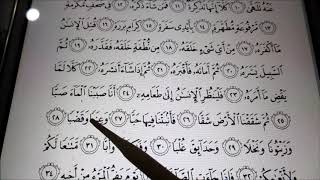 عَنْهُ تَلَهَّىٰ ١٠ كَلَّا إِنَّهَا تَذْكِرَةٌ ١١ فَمَن شَاءَ ذَكَرَهُ ١٢ فِي صُحُفٍ مُّكَرَّمَةٍ
١٣ مَّرْفُوعَةٍ مُّطَهَّرَةٍ ١٤ بِأَيْدِي سَفَرَةٍ ١٥ كِرَامٍ بَرَرَةٍ ١٦ قُتِلَ الْإِنسَانُ
مَا أَكْفَرَهُ ١٧ مِنْ أَيِّ شَيْءٍ خَلَقَهُ ١٨ مِن نُّطْفَةٍ خَلَقَهُ فَقَدَّرَهُ ١٩ ثُمَّ
السَّبِيلَ يَسَّرَهُ ٢٠ ثُمَّ أَمَاتَهُ فَأَقْبَرَهُ ٢١ ثُمَّ إِذَا شَاءَ أَنشَرَهُ ٢٢ كَلَّا لَمَّا
يَقْضِ مَا أَمَرَهُ ٢٣ فَلْيَنظُرِ الْإِنسَانُ إِلَىٰ طَعَامِهِ ٢٤ أَنَّا صَبَبْنَا الْمَاءَ صَبًّا
٢٥ ثُمَّ شَقَقْنَا الْأَرْضَ شَقًّا ٢٦ فَأَنبَتْنَا فِيهَا حَبًّا ٢٧ وَعِنَبًا وَقَضْبًا ٢٨
وَزَيْتُونًا وَنَخْلًا ٢٩ وَحَدَائِقَ غُلْبًا ٣٠ وَفَاكِهَةً وَأَبًّا ٣١ مَّتَاعًا لَّكُمْ